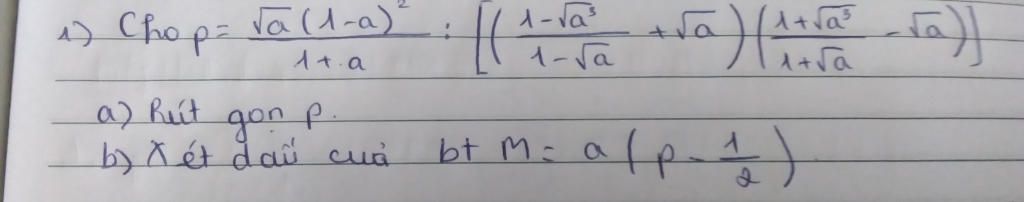 1) Cho p = √a(1-a)² / 1+a : [(1-√a³ / 1-√a + √a)(1+√a³ / 1+√a - √a)]
a) Rút gọn p.
b) Xét dấu cuả bt M = a(p - 1/2)